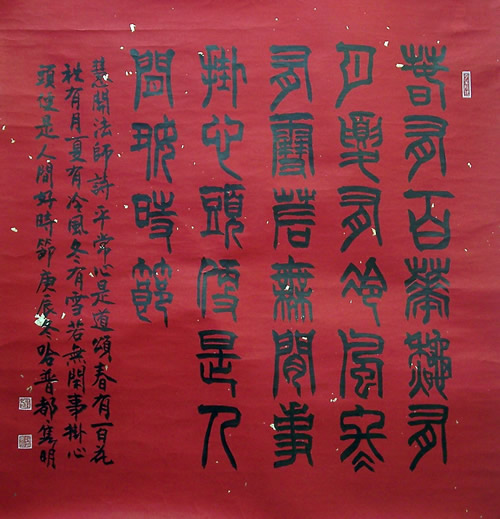 春有百華秋有
月夏有冷風冬
有雪若無閒事
掛心頭便是人
間好時節
慧開法師詩平常心是道頌春有百花
秋有月夏有冷風冬有雪若無閑事掛心
頭便是人間好時節庚辰冬哈普都隽明